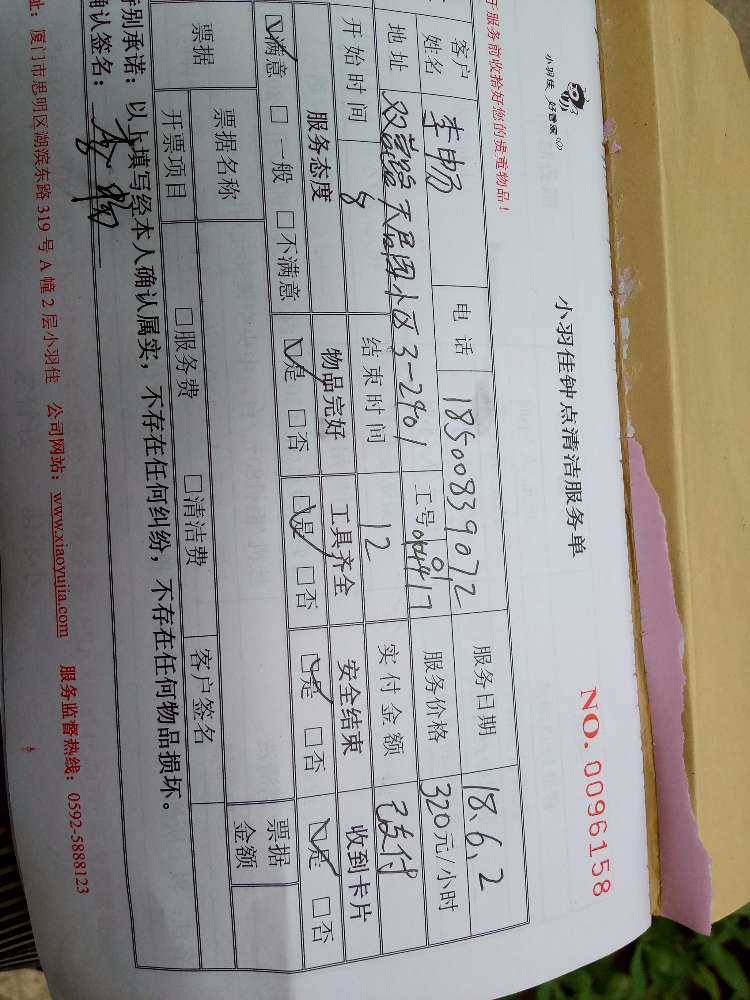 小羽佳 好管家
小羽佳钟点清洁服务单
NO. 0096158
于服务前收拾好您的贵重物品！
客户姓名 李畅 电话 18500839072 服务日期 18.6.2
地址 天邑园小区3-2901 工号 服务价格 320元/小时
开始时间 8 结束时间 12 实付金额 已支付
服务态度 物品完好 工具齐全 安全结束 收到卡片
☑满意 □一般 □不满意 ☑是 □否 ☑是 □否 ☑是 □否 ☑是 □否
票据 票据名称 票据金额
开票项目 □服务费 □清洁费 客户签名
特别承诺：以上填写经本人确认属实，不存在任何纠纷，不存在任何物品损坏。
确认签名：李畅
址：厦门市思明区湖滨东路319号A幢2层小羽佳 公司网站：www.xiaoyujia.com 服务监督热线：0592-5888123